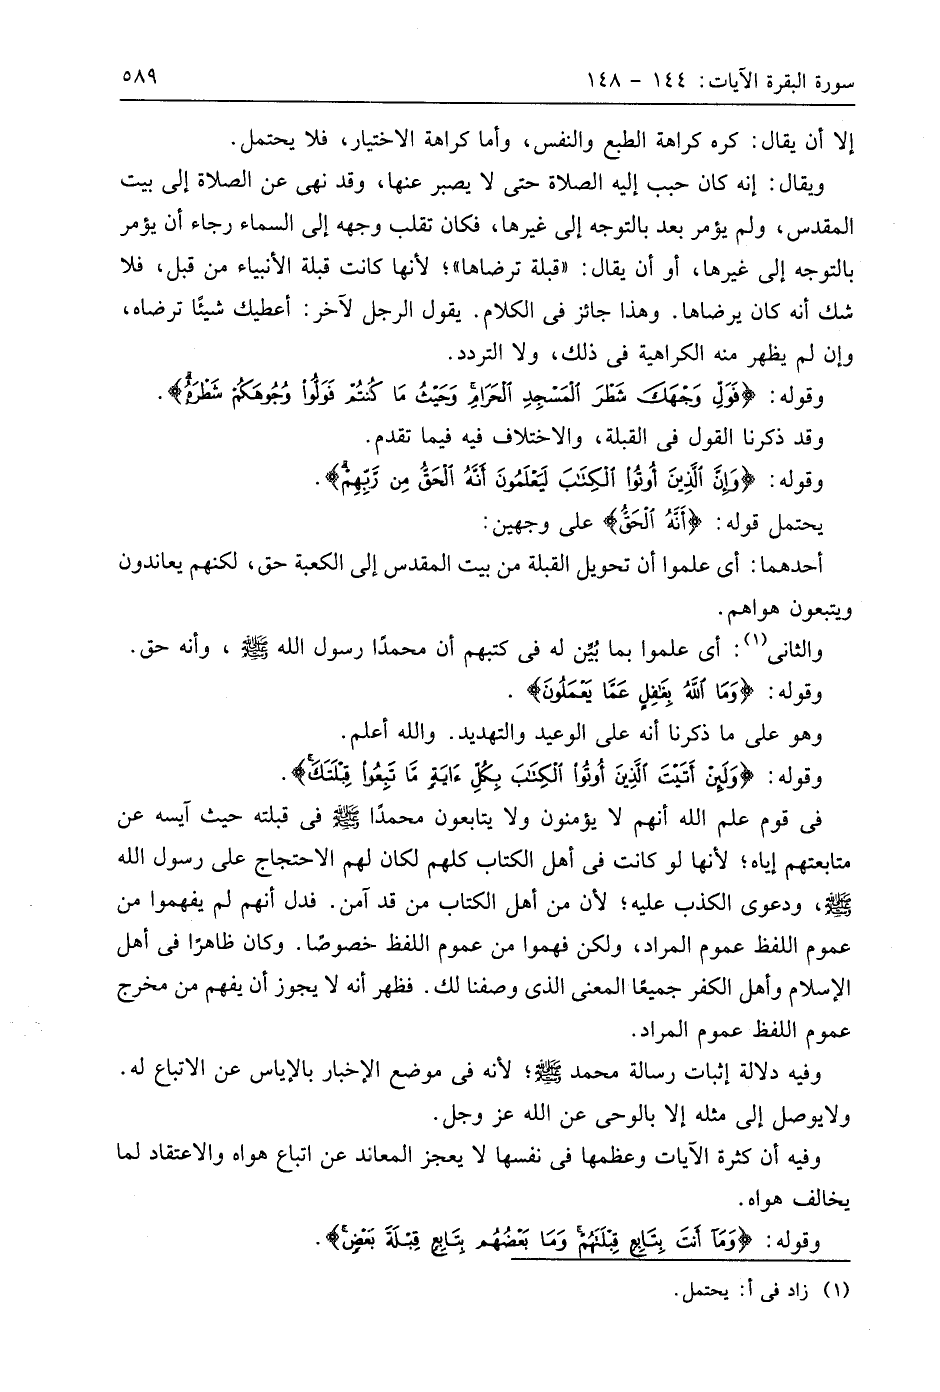 سورة البقرة الآيات: ١٤٤ - ١٤٨ ٥٨٩
إلا أن يقال: كره كراهة الطبع والنفس، وأما كراهة الاختيار، فلا يحتمل.
ويقال: إنه كان حبب إليه الصلاة حتى لا يصبر عنها، وقد نهى عن الصلاة إلى بيت
المقدس، ولم يؤمر بعد بالتوجه إلى غيرها، فكان تقلب وجهه إلى السماء رجاء أن يؤمر
بالتوجه إلى غيرها، أو أن يقال: «قبلة ترضاها»؛ لأنها كانت قبلة الأنبياء من قبل، فلا
شك أنه كان يرضاها. وهذا جائز فى الكلام. يقول الرجل لآخر: أعطيك شيئًا ترضاه،
وإن لم يظهر منه الكراهية فى ذلك، ولا التردد.
وقوله: ﴿فَوَلِّ وَجْهَكَ شَطْرَ ٱلْمَسْجِدِ ٱلْحَرَامِۚ وَحَيْثُ مَا كُنتُمْ فَوَلُّوا۟ وُجُوهَكُمْ شَطْرَهُۥۗ﴾.
وقد ذكرنا القول فى القبلة، والاختلاف فيه فيما تقدم.
وقوله: ﴿وَإِنَّ ٱلَّذِينَ أُوتُوا۟ ٱلْكِتَٰبَ لَيَعْلَمُونَ أَنَّهُ ٱلْحَقُّ مِن رَّبِّهِمْۗ﴾.
يحتمل قوله: ﴿أَنَّهُ ٱلْحَقُّ﴾ على وجهين:
أحدهما: أى علموا أن تحويل القبلة من بيت المقدس إلى الكعبة حق، لكنهم يعاندون
ويتبعون هواهم.
والثانى(١): أى علموا بما بُيِّن له فى كتبهم أن محمدًا رسول الله ﷺ ، وأنه حق.
وقوله: ﴿وَمَا ٱللَّهُ بِغَٰفِلٍ عَمَّا يَعْمَلُونَ﴾ .
وهو على ما ذكرنا أنه على الوعيد والتهديد. والله أعلم.
وقوله: ﴿وَلَئِنْ أَتَيْتَ ٱلَّذِينَ أُوتُوا۟ ٱلْكِتَٰبَ بِكُلِّ ءَايَةٍ مَّا تَبِعُوا۟ قِبْلَتَكَۚ﴾.
فى قوم علم الله أنهم لا يؤمنون ولا يتابعون محمدًا ﷺ فى قبلته حيث آيسه عن
متابعتهم إياه؛ لأنها لو كانت فى أهل الكتاب كلهم لكان لهم الاحتجاج على رسول الله
ﷺ، ودعوى الكذب عليه؛ لأن من أهل الكتاب من قد آمن. فدل أنهم لم يفهموا من
عموم اللفظ عموم المراد، ولكن فهموا من عموم اللفظ خصوصًا. وكان ظاهرًا فى أهل
الإسلام وأهل الكفر جميعًا المعنى الذى وصفنا لك. فظهر أنه لا يجوز أن يفهم من مخرج
عموم اللفظ عموم المراد.
وفيه دلالة إثبات رسالة محمد ﷺ؛ لأنه فى موضع الإخبار بالإياس عن الاتباع له.
ولايوصل إلى مثله إلا بالوحى عن الله عز وجل.
وفيه أن كثرة الآيات وعظمها فى نفسها لا يعجز المعاند عن اتباع هواه والاعتقاد لما
يخالف هواه.
وقوله: ﴿وَمَآ أَنتَ بِتَابِعٍ قِبْلَتَهُمْۚ وَمَا بَعْضُهُم بِتَابِعٍ قِبْلَةَ بَعْضٍۚ﴾.
(١) زاد فى أ: يحتمل.